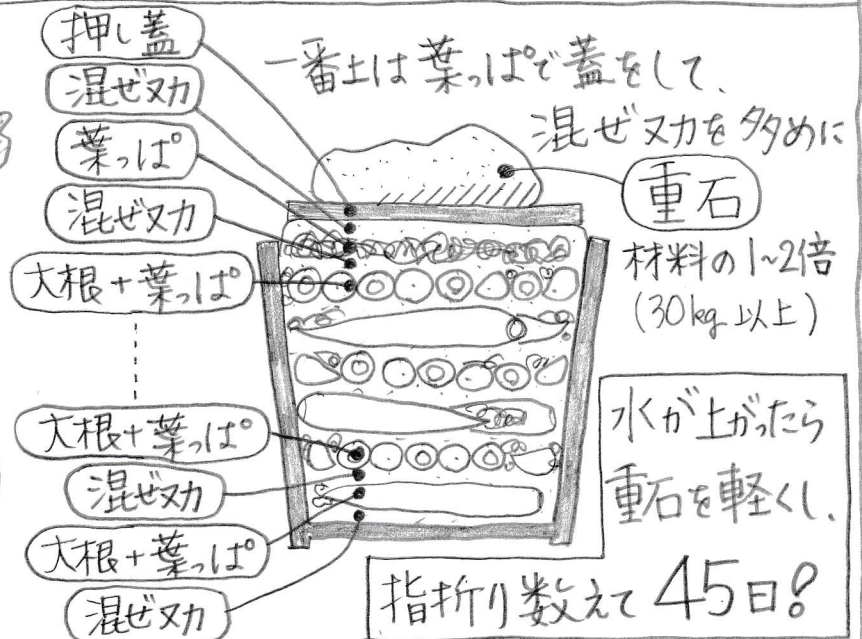 押し蓋
混ぜヌカ
葉っぱ
混ぜヌカ
大根+葉っぱ
大根+葉っぱ
混ぜヌカ
大根+葉っぱ
混ぜヌカ
一番上は葉っぱで蓋をして、
混ぜヌカを多めに
重石
材料の1~2倍
(30kg以上)
水が上がったら
重石を軽くし、
指折り数えて45日?